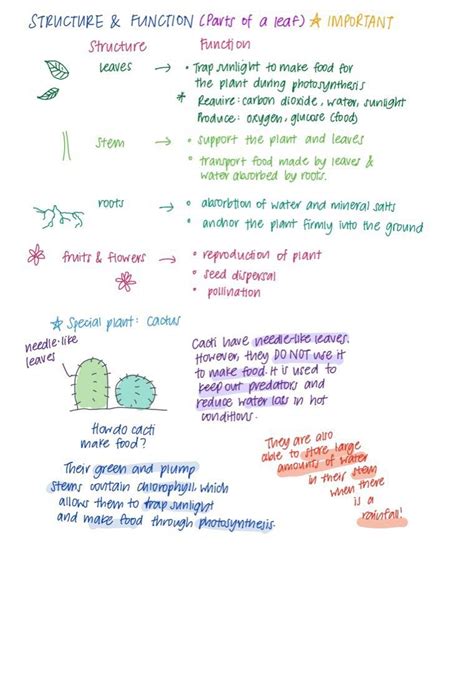 STRUCTURE & FUNCTION (Parts of a leaf) ☆ IMPORTANT
Structure Function
leaves → • Trap sunlight to make food for
the plant during photosynthesis
* Require: carbon dioxide, water, sunlight
Produce: oxygen, glucose (food)
stem → • support the plant and leaves
• transport food made by leaves &
water absorbed by roots.
roots → • absorbtion of water and mineral salts
• anchor the plant firmly into the ground
fruits & flowers → • reproduction of plant
• seed dispersal
• pollination
☆ Special plant: Cactus
needle-like
leaves
Cacti have needle-like leaves.
However, they DO NOT use it
to make food. It is used to
keep out predators and
reduce water loss in hot
conditions.
How do cacti
make food?
Their green and plump
stems contain chlorophyll which
allows them to trap sunlight
and make food through photosynthesis.
They are also
able to store large
amounts of water
in their stem
when there
is a
rainfall!